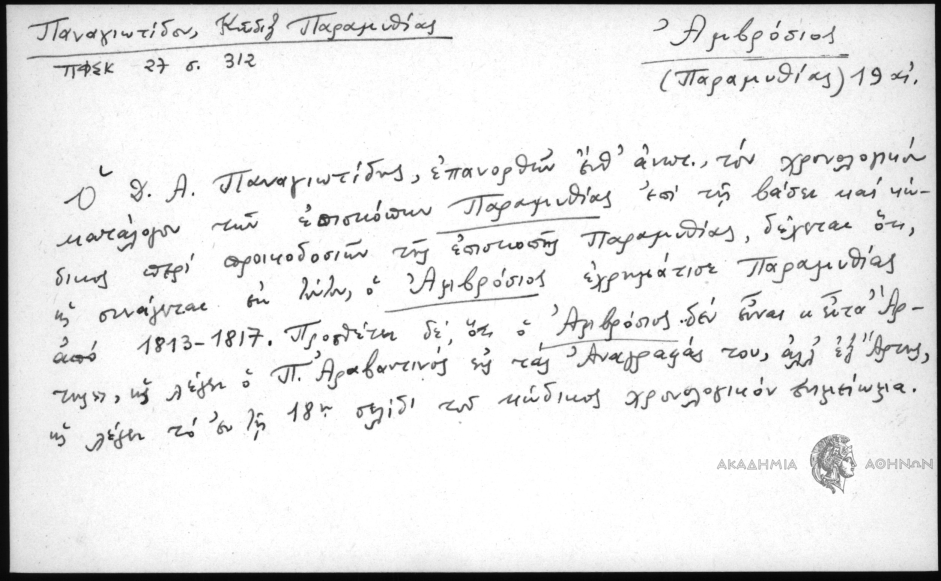 Παναγιωτίδου, Κώδιξ Παραμυθίας
ΠΦΣΚ 27 σ. 312
Ἀμβρόσιος
(Παραμυθίας) 19 αἰ.
Ὁ Δ. Α. Παναγιωτίδης, ἐπανορθῶν ἔνθ' ἀνωτ., τόν χρονολογικόν
κατάλογον τῶν ἐπισκόπων Παραμυθίας ἐπί τῇ βάσει καί κώ-
δικος περί προικοδοσιῶν τῆς ἐπισκοπῆς Παραμυθίας, δέχεται ὅτι,
ὡς συνάγεται ἐκ τούτου, ὁ Ἀμβρόσιος ἐχρημάτισε Παραμυθίας
ἀπό 1813-1817. Προσθέτει δέ, ὅτι ὁ Ἀμβρόσιος δέν εἶναι ὁ εἶτα Ἄρ-
της, ὡς λέγει ὁ Π. Ἀραβαντινός εἰς τάς Ἀναγραφάς του, ἀλλ' ἐξ Ἄρτης,
ὡς λέγει τό ἐν τῇ 18ῃ σελίδι τοῦ κώδικος χρονολογικόν σημείωμα.
ΑΚΑΔΗΜΙΑ ΑΘΗΝΩΝ